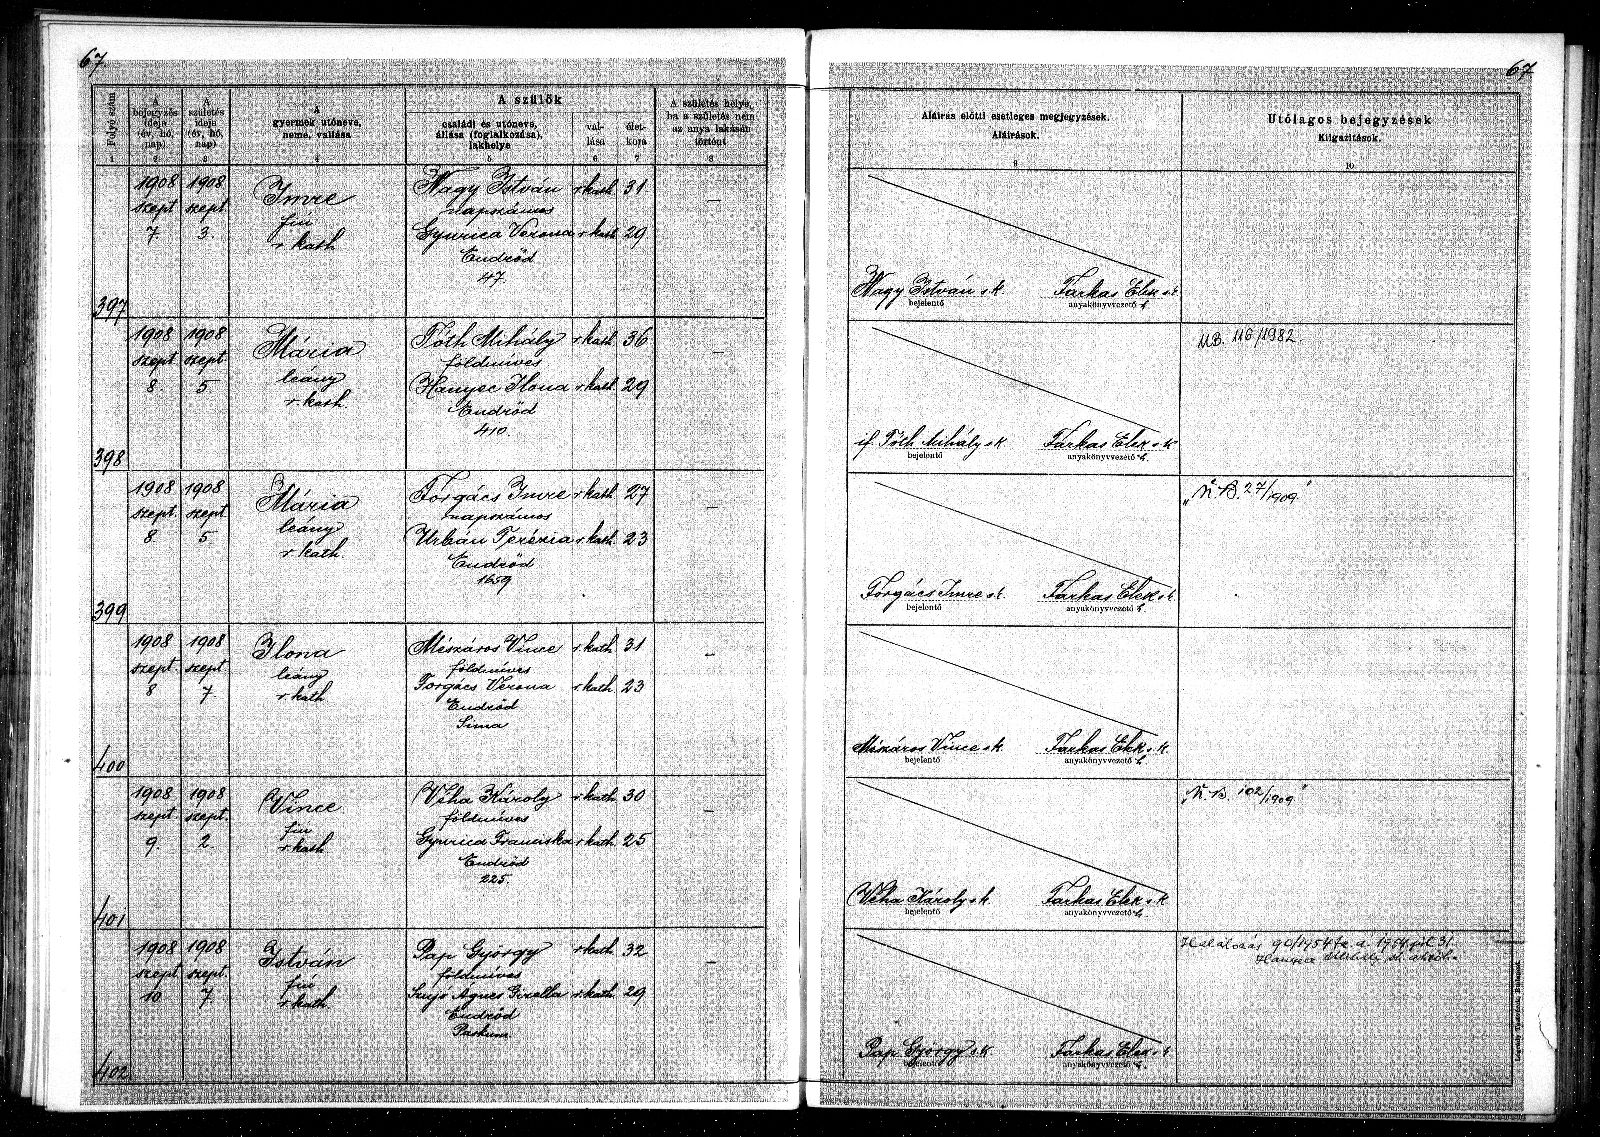 67
67
Folyó szám
A bejegyzés ideje (év, hó, nap)
A születés ideje (év, hó, nap)
A gyermek utóneve, neme, vallása
A szülők
családi és utóneve, állása (foglalkozása), lakhelye
vallása
életkora
A születés helye, ha a születés nem az anya lakásán történt
Aláírás előtti esetleges megjegyzések. Aláírások.
Utólagos bejegyzések
Kiigazítások.
1 2 3 4 5 6 7 8 9 10.
1908 1908 Imre Nagy István r. kath. 31 —
szept. szept. fiú napszámos
7. 3. r. kath. Gyurica Verona r. kath. 29
Endrőd
47.
397
Nagy István s.k. Farkas Elek s.k.
bejelentő anyakönyvvezető h.
1908 1908 Mária Tóth Mihály r. kath. 36 —
szept. szept. leány földmíves
8 5 r. kath. Hanyec Ilona r. kath. 29
Endrőd
410.
398
M.B. 116/1982.
if. Tóth Mihály s.k. Farkas Elek s.k.
bejelentő anyakönyvvezető h.
1908 1908 Mária Forgács Imre r. kath. 27 —
szept. szept. leány napszámos
8. 5 r. kath. Urbán Terézia r. kath. 23
Endrőd
1659
399
„N. B. 27/1909"
Forgács Imre s.k. Farkas Elek s.k.
bejelentő anyakönyvvezető h.
1908 1908 Ilona Mészáros Vince r. kath. 31 —
szept. szept. leány földmíves
8 7. r. kath. Forgács Verona r. kath. 23
Endrőd
Sima
400
Mészáros Vince s.k. Farkas Elek s.k.
bejelentő anyakönyvvezető h.
1908 1908 Vince Véha Károly r. kath. 30 —
szept. szept. fiú földmíves
9. 2. r. kath. Gyurica Franciska r. kath. 25
Endrőd
225.
401
„N. B. 102/1909"
Véha Károly s.k. Farkas Elek s.k.
bejelentő anyakönyvvezető h.
1908 1908 István Pap György r. kath. 32 —
szept. szept. fiú földmíves
10 7. r. kath. Szujó Ágnes Gizella r. kath. 29
Endrőd
402
Halálozás 90/1954
Pap György s.k. Farkas Elek s.k.
bejelentő anyakönyvvezető h.